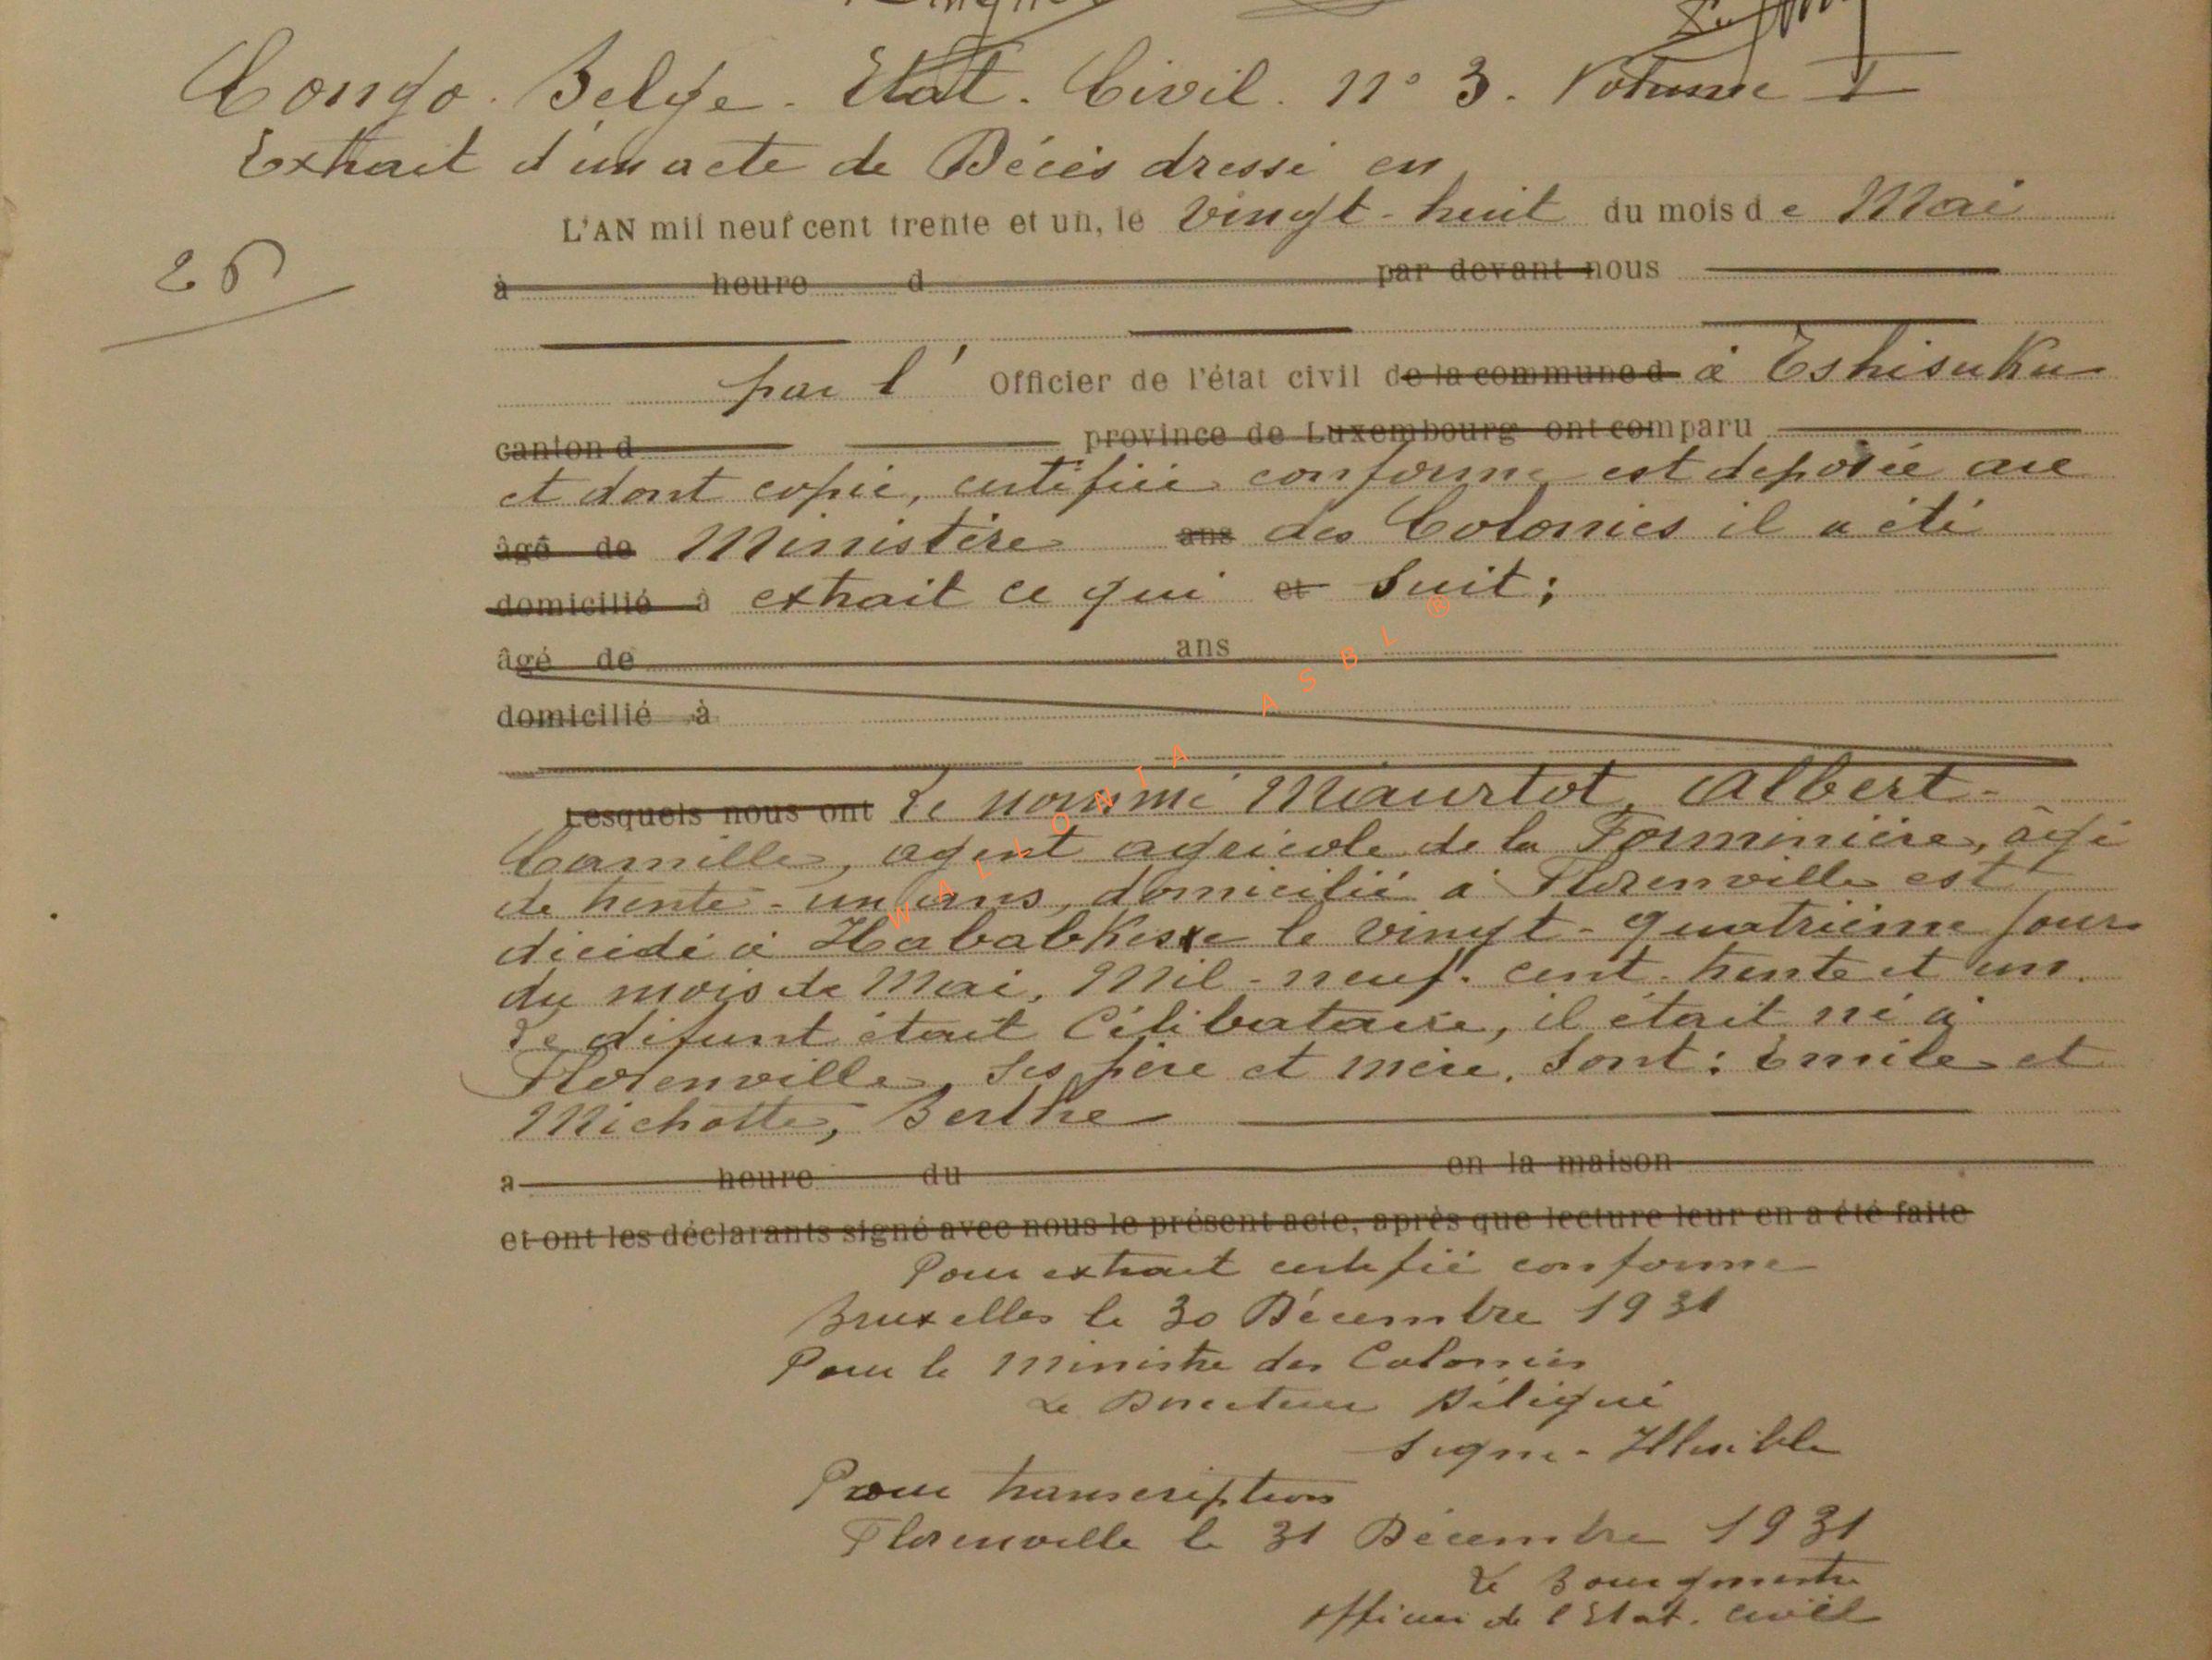 Congo Belge. Etat. Civil. n° 3. Volume I
Extrait d'un acte de Décès dressé en
26
L'AN mil neuf cent trente et un, le vingt-huit du mois de Mai
à heure d par devant nous
par l' Officier de l'état civil de la commune d à Tshisuku
canton d province de Luxembourg ont comparu
et dont copie, certifiée conforme est déposée au
âgé de Ministère ans des Colonies il a été
domicilié à extrait ce qui et suit;
âgé de ans
domicilié à
Lesquels nous ont Le nommé Miaurtot, Albert-
Camille, agent agricole de la Forminière, âgé
de trente-un ans, domicilié à Florenville est
décédé à le vingt-quatrième jour
du mois de Mai, Mil-neuf-cent-trente et un.
Le défunt était Célibataire, il était né à
Florenville, Ses père et mère, Sont: Emile et
Michotte, Berthe
a heure du en la maison
et ont les déclarants signé avec nous le présent acte, après que lecture leur en a été faite
Pour extrait certifié conforme
Bruxelles le 30 Décembre 1931
Pour le Ministre des Colonies
Le Directeur Délégué
Signé-Illisible
Pour transcription
Florenville le 31 Décembre 1931
Le Bourgmestre
Officier de l'Etat. Civil
WALLONIA ASBL ®